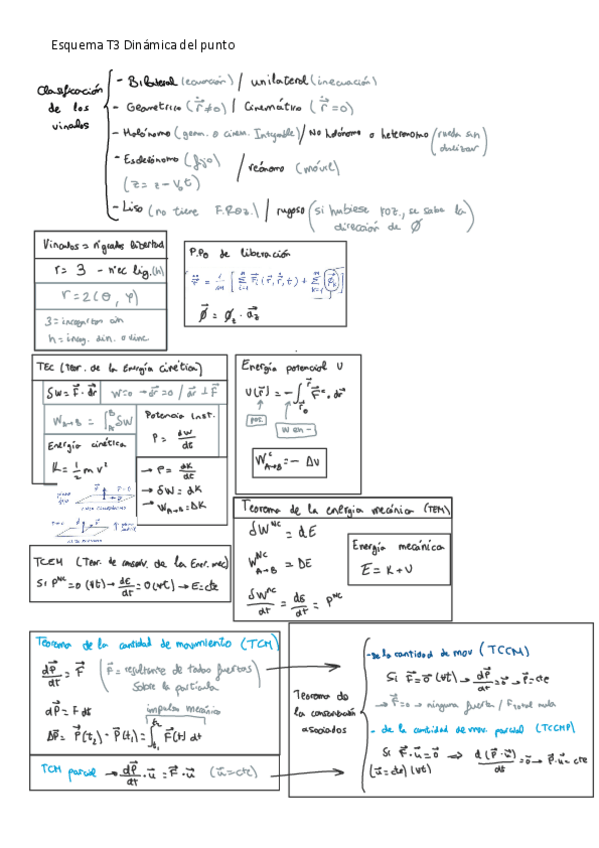 Esquema T3 Dinámica del punto
Clasificación de los vínculos
- Bilateral (ecuación) / unilateral (inecuación)
- Geométrico (r≠0) / Cinemático (r=0)
- Holónomo (geom. o cinem. Integrable) / No holónomo o heterónomo (rueda sin deslizar)
- Esclerónomo (fijo) / reónomo (móvil)
(z = z - v₀t)
- Liso (no tiene F.Roz.) / rugoso (si hubiese roz., se sabe la dirección de Ø)
Vínculos = nº grados libertad
r = 3 - nº ec lig. (h)
r = 2 (θ, φ)
3 = incognitas cin
h = incog. din. o vinc.
P.Pº de liberación
r̈ = 1/m [ Σ F⃗ᵢ (r⃗, ṙ, t) + Σ Ø⃗ₖ ]
Ø⃗ = Ø_z · u⃗_z
TEC (Teor. de la Energía cinética)
δW = F⃗ · dr⃗
W=0 → dr⃗=0 / dr⃗ ⊥ F⃗
W_A→B = ∫ δW
Potencia Inst.
P = dW/dt
Energía cinética
K = 1/2 m v²
→ P = dK/dt
→ δW = dK
→ W_A→B = ΔK
Energía potencial U
U(r⃗) = - ∫ F⃗ᶜ · dr⃗
pos.
W en -
Wᶜ_A→B = - ΔU
Teorema de la energía mecánica (TEM)
δWᴺᶜ = dE
Wᴺᶜ_A→B = ΔE
δWᴺᶜ/dt = dE/dt = Pᴺᶜ
Energía mecánica
E = K + U
TCEM (Teor. de conserv. de la Ener. mec)
Si Pᴺᶜ = 0 (∀t) → dE/dt = 0 (∀t) → E = cte
Teorema de la cantidad de movimiento (TCM)
dp⃗/dt = F⃗ (F⃗ = resultante de todas fuerzas sobre la partícula)
dp⃗ = F dt
impulso mecánico
Δp⃗ = p⃗(t₂) - p⃗(t₁) = ∫ F⃗(t) dt
TCM parcial → dp⃗/dt · u⃗ = F⃗ · u⃗ (u⃗ = cte)
Teorema de la conservación asociados
- de la cantidad de mov (TCCM)
Si F⃗ = 0⃗ (∀t) → dp⃗/dt = 0⃗ → p⃗ = cte
→ F⃗=0 → ninguna fuerza / F total nula
- de la cantidad de mov. parcial (TCCMP)
Si F⃗ · u⃗ = 0 ⇒ d(p⃗ · u⃗)/dt = 0 → p⃗ · u⃗ = cte
(u⃗ = cte) (∀t)